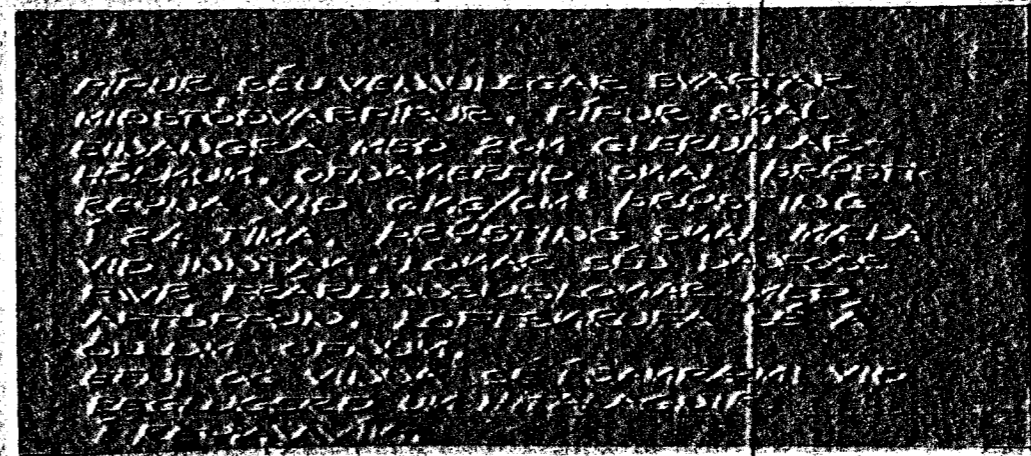 PÍPUR SÉU VENJULEGAR SVARTAR
MIÐSTÖÐVARPÍPUR. PÍPUR SKAL
EINANGRA MEÐ 2CM GLERULLAR-
HÓLKUM. OFNAKERFIÐ SKAL ÞRÝSTI-
REYNA VIÐ 6KG/CM² ÞRÝSTING
Í 24 TÍMA. ÞRÝSTING SKAL MÆLA
VIÐ INNTAK. LOKAR SÉU DANFOSS
MEÐ
LOFTSKRÚFA SÉ Á
ÖLLUM OFNUM.
EFNI OG VINNA SÉ Í SAMRÆMI VIÐ
REGLUGERÐ UM HITALAGNIR
Í REYKJAVÍK.